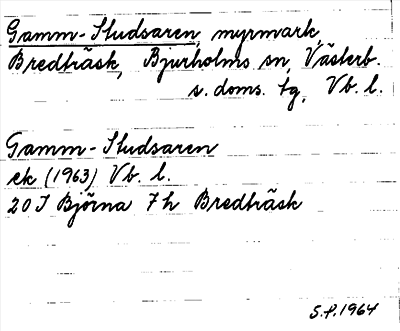 Gamm-Studsaren, myrmark,
Bredträsk, Bjurholms sn, Västerb.
s. doms. tg, Vb. l.
Gamm-Studsaren
ek (1963) Vb. l.
20 I Björna 7h Bredträsk
S.P. 1964